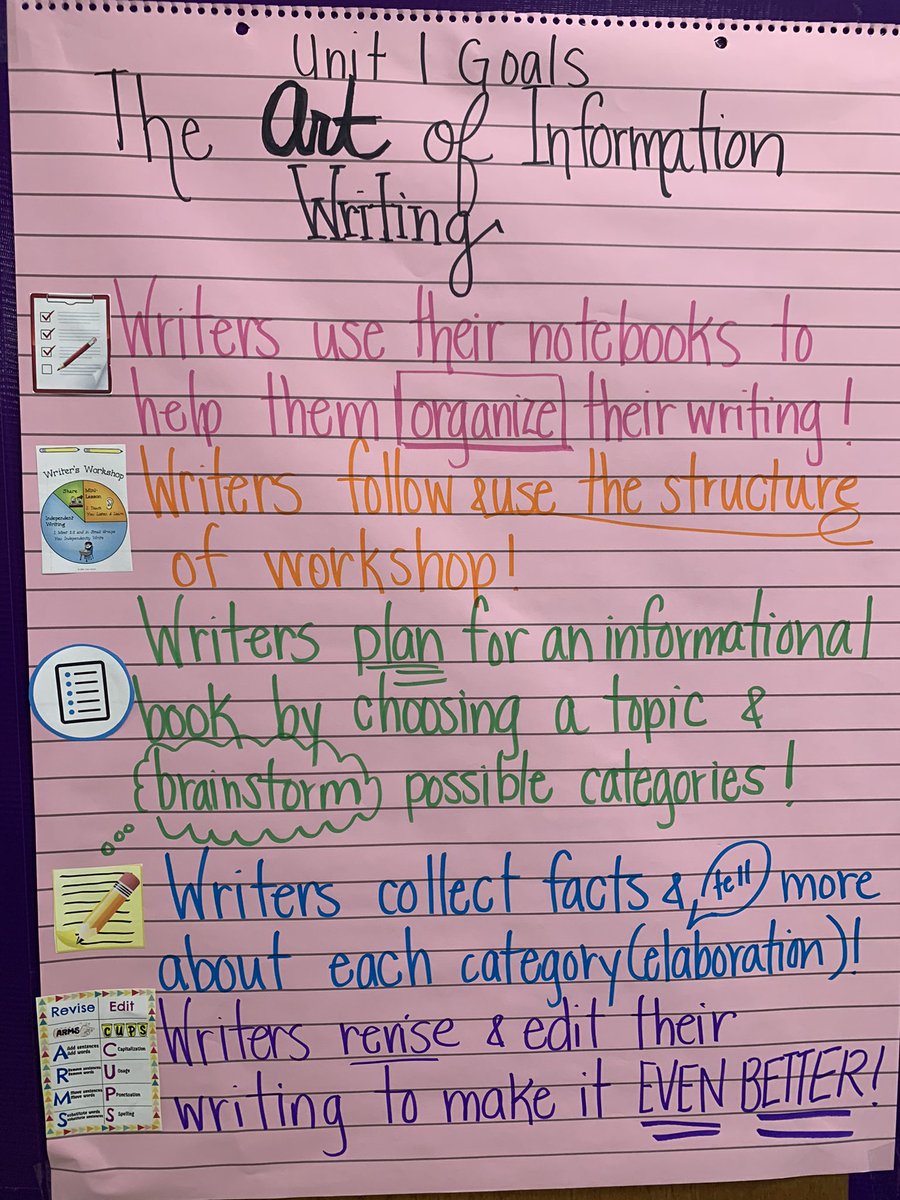 Unit 1 Goals
The Art of Information
Writing
Writers use their notebooks to
help them organize their writing!
Writer's Workshop
Share
Mini-
Lesson
I Teach
You Listen & Learn
Independent
Writing
You Independently Write
Writers follow & use the structure
of workshop!
Writers plan for an informational
book by choosing a topic &
brainstorm possible categories!
Writers collect facts & tell more
about each category (elaboration)!
Revise Edit
ARMS CUPS
A Add sentences
Add words
C Capitalization
R Remove sentences
Remove words
U Usage
M Move sentences
Move words
P Punctuation
S Substitute words
Substitute sentences
S Spelling
Writers revise & edit their
writing to make it EVEN BETTER!